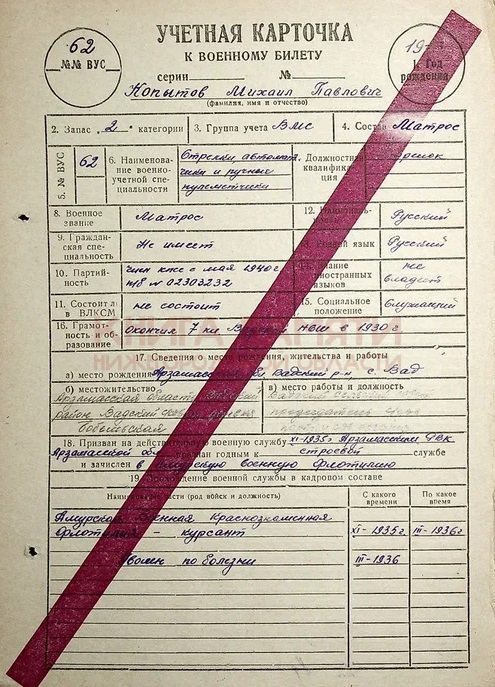 62
№№ ВУС
УЧЕТНАЯ КАРТОЧКА
К ВОЕННОМУ БИЛЕТУ
серии №
19
1. Год
рождения
Копытов Михаил Павлович
(фамилия, имя и отчество)
2. Запас „2" категории 3. Группа учета ВМС 4. Состав Матрос
5. № ВУС 62 6. Наименование военно-учетной специальности Стрелки, автоматчики и ручные пулеметчики 7. Должностная квалификация Стрелок
8. Военное звание Матрос 12. Русский
9. Гражданская специальность Не имеет язык Русский
10. Партийность член кпсс с мая 1940г п/б № 02303232 иностранных языков не владеет
11. Состоит ли в ВЛКСМ не состоит 15. Социальное положение Служащий
16. Грамотность и образование Окончил 7 кл НСШ в 1930 г
КНИГА ПАМЯТИ
17. Сведения о месте рождения, жительства и работы
а) место рождения Арзамасская Вадский р-н с. Вад
б) местожительство в) место работы и должность
Арзамасская область Вадский
район, Вадский
председатель
18. Призван на действительную военную службу XI-1935г Арзамасским РВК
Арзамасской обл годным к строевой службе
и зачислен в Амурскую военную Флотилию
19. Прохождение военной службы в кадровом составе
Наименование части (род войск и должность) С какого времени По какое время
Амурская Военная Краснознаменная
Флотилия - курсант XI-1935г. III-1936г
Уволен по болезни III-1936